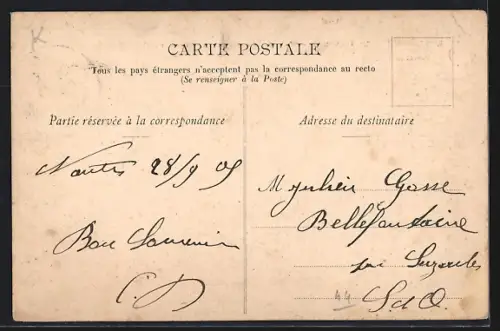 CARTE POSTALE
Tous les pays étrangers n'acceptent pas la correspondance au recto
(Se renseigner à la Poste)
Partie réservée à la correspondance
Adresse du destinataire
Nantes 28/9 05
Bon Souvenir
C.D
M Julien Gosse
Bellefontaine
par Luzarches
S d O.
44